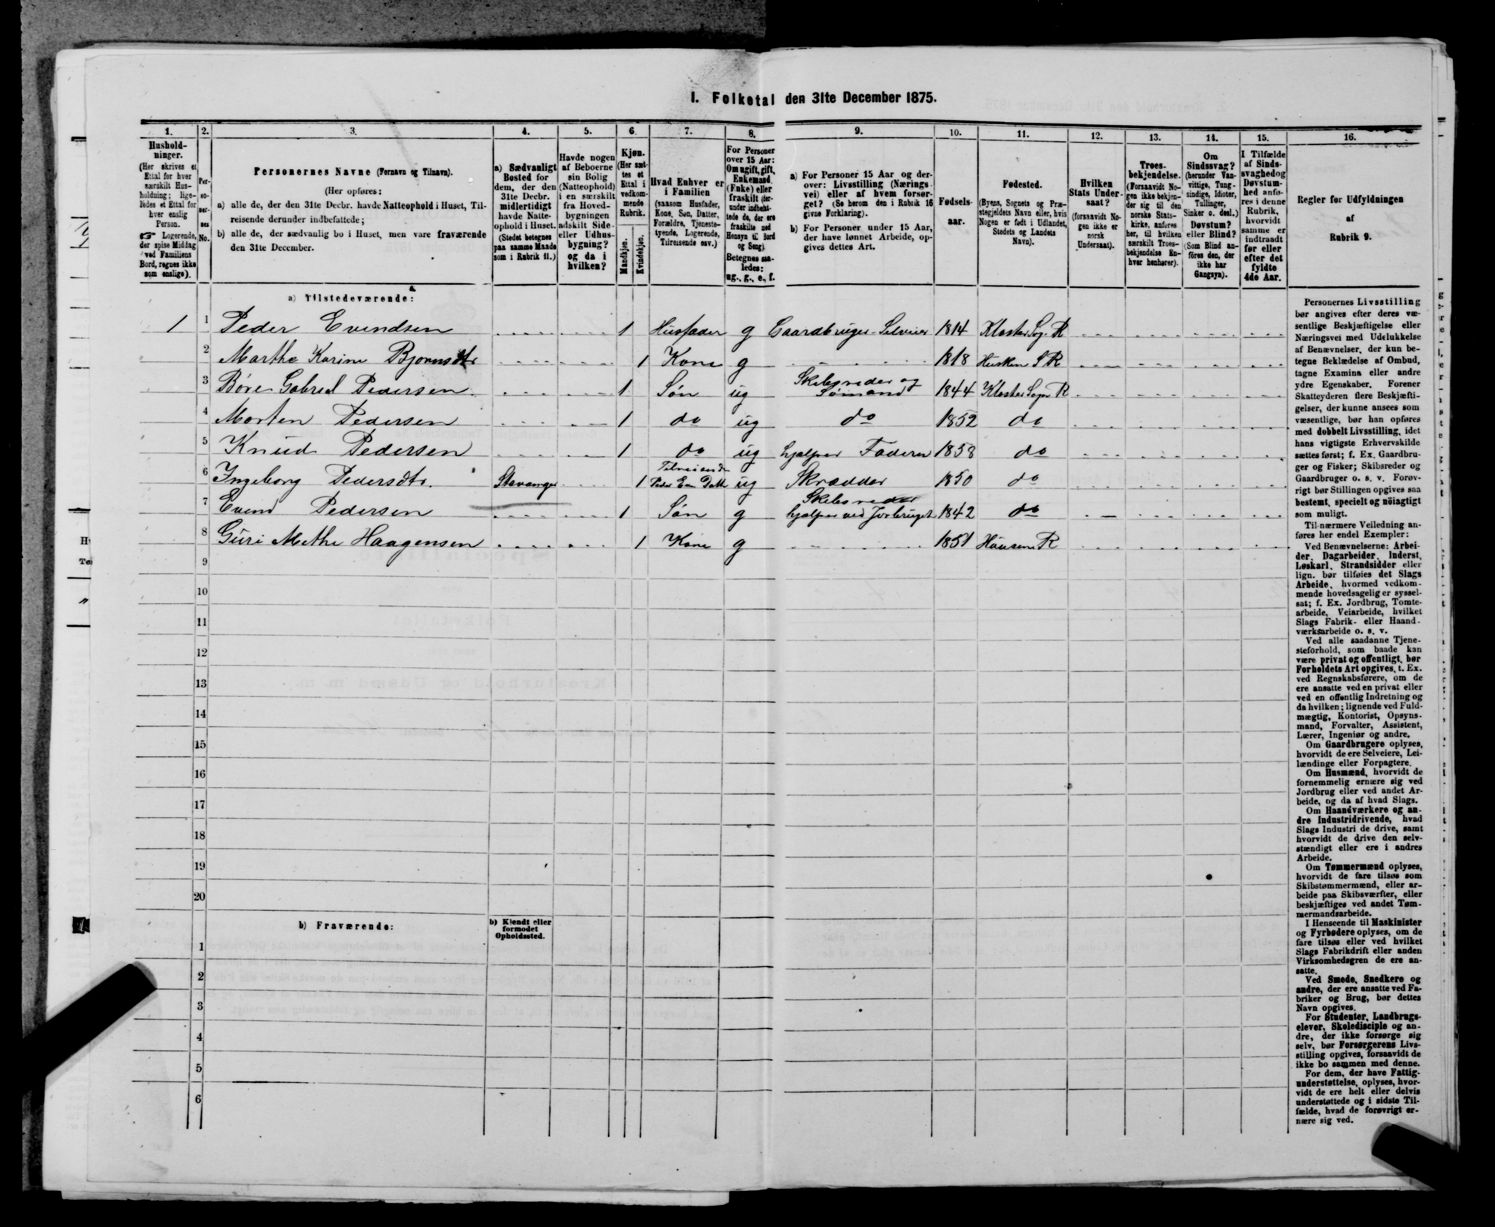 I. Folketal den 31te December 1875.
1. 2. 3. 4. 5. 6. 7. 8. 9. 10. 11. 12. 13. 14. 15. 16.
Hushold-
ninger.
(Her skrives et
Ettal for hver
særskilt Hus-
holdning; lige-
ledes et Ettal for
hver enslig
Person.
☞ Logerende,
der spise Middag
ved Familiens
Bord, regnes ikke
som enslige).
Per-
so-
ner-
nes
No.
Personernes Navne (Fornavn og Tilnavn).
(Her opføres:
a) alle de, der den 31te Decbr. havde Natteophold i Huset, Til-
reisende derunder indbefattede;
b) alle de, der sædvanlig bo i Huset, men vare fraværende
den 31te December.
a) Sædvanligt
Bosted for
dem, der den
31te Decbr.
midlertidigt
havde Natte-
ophold i Huset.
(Stedet betegnes
paa samme Maade
som i Rubrik 11.)
Havde nogen
af Beboerne
sin Bolig
(Natteophold)
i en særskilt
fra Hoved-
bygningen
adskilt Side-
eller Udhus-
bygning?
og da i
hvilken?
Kjøn.
(Her sæt-
tes et
Ettal i
vedkom-
mende
Rubrik.
Mandkjøn.
Kvindekjøn.
Hvad Enhver er
i Familien
(saasom Husfader,
Kone, Søn, Datter,
Forældre, Tjeneste-
tyende, Logerende,
Tilreisende osv.)
For Personer
over 15 Aar:
Om ugift, gift,
Enkemand
(Enke) eller
fraskilt (der-
under indbefat-
tede de, der ere
fraskilte med
Hensyn til Bord
og Seng).
Betegnes saa-
ledes:
ug., g., e., f.
a) For Personer 15 Aar og der-
over: Livsstilling (Nærings-
vei) eller af hvem forsør-
get? (Se herom den i Rubrik 16
givne Forklaring).
b) For Personer under 15 Aar,
der have lønnet Arbeide, op-
gives dettes Art.
Fødsels-
aar.
Fødested.
(Byens, Sognets og Præ-
stegjeldets Navn eller, hvis
Nogen er født i Udlandet,
Stedets og Landets
Navn).
Hvilken
Stats Under-
saat?
(forsaavidt No-
gen ikke er
norsk
Undersaat).
Troes-
bekjendelse.
(Forsaavidt No-
gen ikke bekjen-
der sig til den
norske Stats-
kirke, anføres
her, til hvilken
særskilt Troes-
bekjendelse En-
hver henhører).
Om
Sindssvag?
(herunder Van-
vittige, Tung-
sindige, Idioter,
Tullinger,
Sinker o. desl.)
Døvstum?
eller Blind?
(Som Blind an-
føres den, der
ikke har
Gangsyn).
I Tilfælde
af Sinds-
svaghed og
Døvstum-
hed anfø-
res i denne
Rubrik,
hvorvidt
samme er
indtraadt
før eller
efter det
fyldte
4de Aar.
Regler for Udfyldningen
af
Rubrik 9.
a) Tilstedeværende:
1 1 Peder Evendsen 1 Husfader g Gaardbruger Selveier 1814 Kloster Sog. R
2 Marthe Karine Bjornsdtr 1 Kone g 1818 R
3 Gabriel Pedersen 1 Søn ug Skibsreder og Sømand 1844 Kloster Sogn R
4 Morten Pedersen 1 do ug do 1852 do
5 Knud Pedersen 1 do ug hjælper Faderen 1858 do
6 Ingeborg Pedersdtr. Stavanger 1 ug Skrædder 1850 do
7 Evend Pedersen 1 Søn g Skibsreder
hjælper ved Jorbruget 1842 do
8 Guri Methe Haagensen 1 Kone g 1851 R
9
10
11
12
13
14
15
16
17
18
19
20
b) Fraværende:
b) Kjendt eller
formodet
Opholdssted.
1
2
3
4
5
6
Personernes Livsstilling
bør angives efter deres væ-
sentlige Beskjæftigelse eller
Næringsvei med Udelukkelse
af Benævnelser, der kun be-
tegne Beklædelse af Ombud,
tagne Examina eller andre
ydre Egenskaber. Forener
Skatteyderen flere Beskjæfti-
gelser, der kunne ansees som
væsentlige, bør han opføres
med dobbelt Livsstilling, idet
hans vigtigste Erhvervskilde
sættes først; f. Ex. Gaardbru-
ger og Fisker; Skibsreder og
Gaardbruger o. s. v. Forøv-
rigt bør Stillingen opgives saa
bestemt, specielt og nöiagtigt
som muligt.
Til nærmere Veiledning an-
føres her endel Exempler:
Ved Benævnelserne: Arbei-
der, Dagarbeider, Inderst,
Løskarl, Strandsidder eller
lign. bør tilføies det Slags
Arbeide, hvormed vedkom-
mende hovedsagelig er syssel-
sat; f. Ex. Jordbrug, Tomte-
arbeide, Veiarbeide, hvilket
Slags Fabrik- eller Haand-
værksarbeide o. s. v.
Ved alle saadanne Tjene-
steforhold, som baade kan
være privat og offentligt, bør
Forholdets Art opgives, t. Ex.
ved Regnskabsførere, om de
ere ansatte ved en privat eller
ved en offentlig Indretning og
da hvilken; lignende ved Fuld-
mægtig, Kontorist, Opsyns-
mand, Forvalter, Assistent,
Lærer, Ingeniør og andre.
Om Gaardbrugere oplyses,
hvorvidt de ere Selveiere, Lei-
lændinge eller Forpagtere.
Om Husmænd, hvorvidt de
fornemmelig ernære sig ved
Jordbrug eller ved andet Ar-
beide, og da af hvad Slags.
Om Haandværkere og an-
dre Industridrivende, hvad
Slags Industri de drive, samt
hvorvidt de drive den selv-
stændigt eller ere i andres
Arbeide.
Om Tømmermænd oplyses,
hvorvidt de fare tilsøs som
Skibstømmermænd, eller ar-
beide paa Skibsværfter, eller
beskjæftiges ved andet Tøm-
mermandsarbeide.
I Henseende til Maskinister
og Fyrbødere oplyses, om de
fare tilsøs eller ved hvilket
Slags Fabrikdrift eller anden
Virksomhedsgren de ere an-
satte.
Ved Smede, Snedkere og
andre, der ere ansatte ved Fa-
briker og Brug, bør dettes
Navn opgives.
For Studenter, Landbrugs-
elever, Skoledisciple og an-
dre, der ikke forsørge sig
selv, bør Forsørgerens Livs-
stilling opgives, forsaavidt de
ikke bo sammen med denne.
For dem, der have Fattig-
understøttelse, oplyses, hvor-
vidt de ere helt eller delvis
understøttede og i sidste Til-
fælde, hvad de forøvrigt er-
nære sig ved.